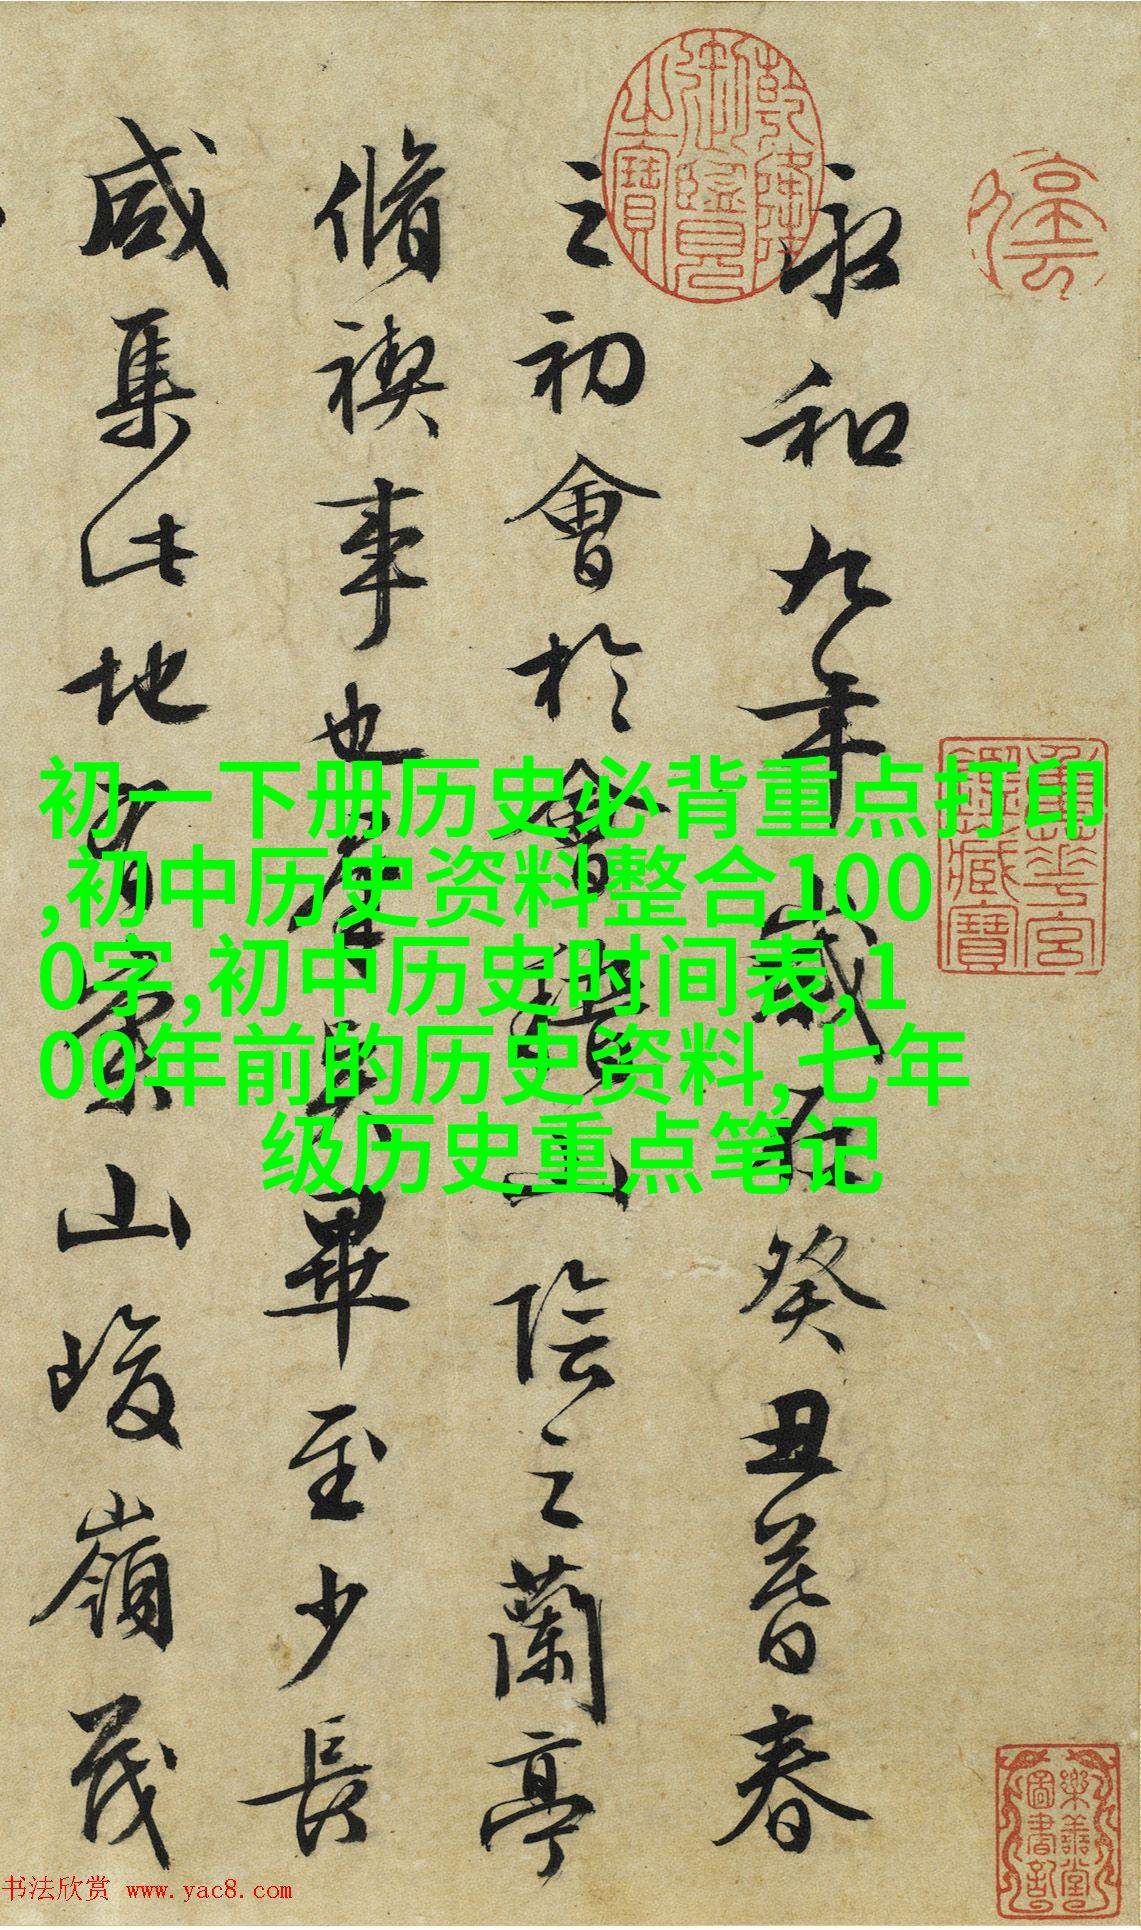 停雲
乾隆御覽之寶
永和九年歲在癸丑暮春
之初會於會稽山陰之蘭亭
脩禊事也羣賢畢至少長
咸集此地有崇山峻嶺茂
重華宮鑑藏寶
樂善堂圖書記
初一下册历史必背重点打印
,初中历史资料整合100
0字,初中历史时间表,1
00年前的历史资料,七年
级历史重点笔记
书法欣赏 www.yac8.com